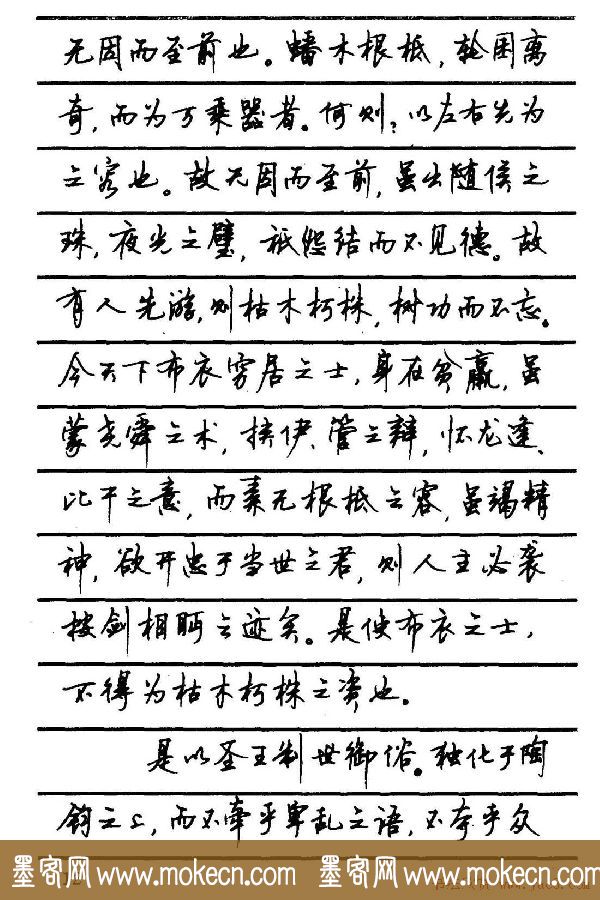 无因而至前也。蟠木根柢，轮囷离
奇，而为万乘器者。何则？以左右先为
之容也。故无因而至前，虽出随侯之
珠，夜光之璧，祇怨结而不见德。故
有人先游，则枯木朽株，树功而不忘。
今天下布衣穷居之士，身在贫羸，虽
蒙尧舜之术，挟伊、管之辩，怀龙逢、
比干之意，而素无根柢之容，虽竭精
神，欲开忠于当世之君，则人主必袭
按剑相眄之迹矣。是使布衣之士，
不得为枯木朽株之资也。
是以圣王制世御俗。独化于陶
钧之上，而不牵乎卑乱之语，不夺乎众
墨客网 www.mokecn.com 墨客网 www.mokecn.com